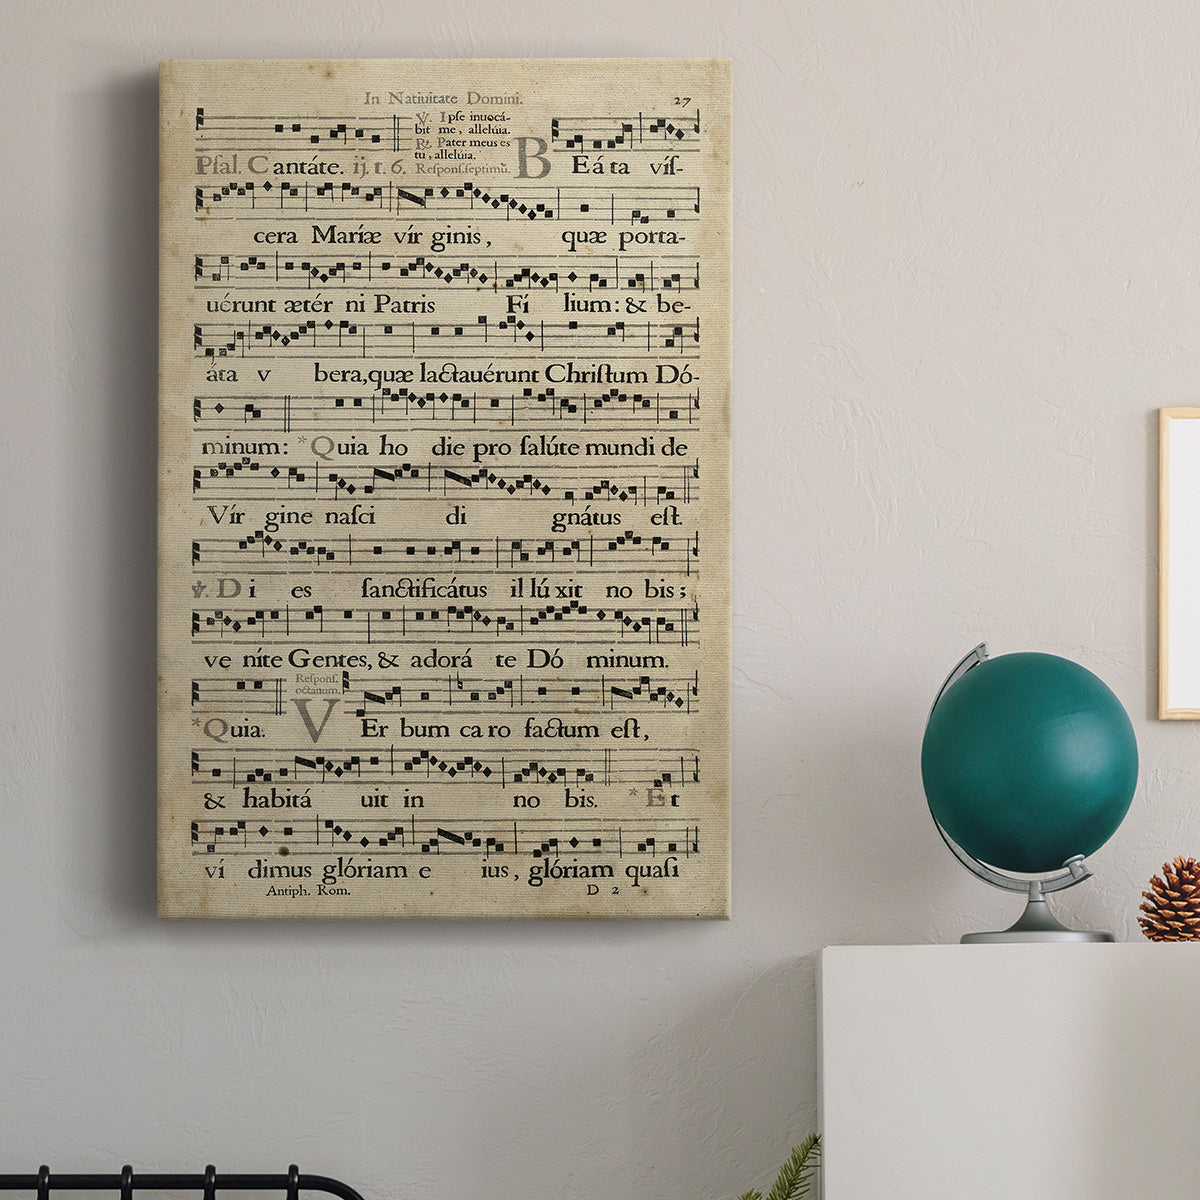 In Natiuitate Domini. 27
℣. Ipſe inuocá-
bit me, allelúia.
℟. Pater meus es
tu, allelúia.
Pſal. Cantáte. ij. t. 6. Reſponſ.ſeptimũ. BEáta víſ-
cera Maríæ vír ginis, quæ porta-
uérunt ætér ni Patris Fí lium: & be-
áta v bera, quæ lactauérunt Chriſtum Dó-
minum: * Quia ho die pro ſalúte mundi de
Vír gine naſci di gnátus eſt.
℣. Di es ſanctificátus il lú xit no bis;
ve níte Gentes, & adorá te Dó minum.
Reſponſ.
octauum.
* Quia. VEr bum ca ro factum eſt,
& habitá uit in no bis. * Et
ví dimus glóriam e ius, glóriam quaſi
Antiph. Rom. D 2